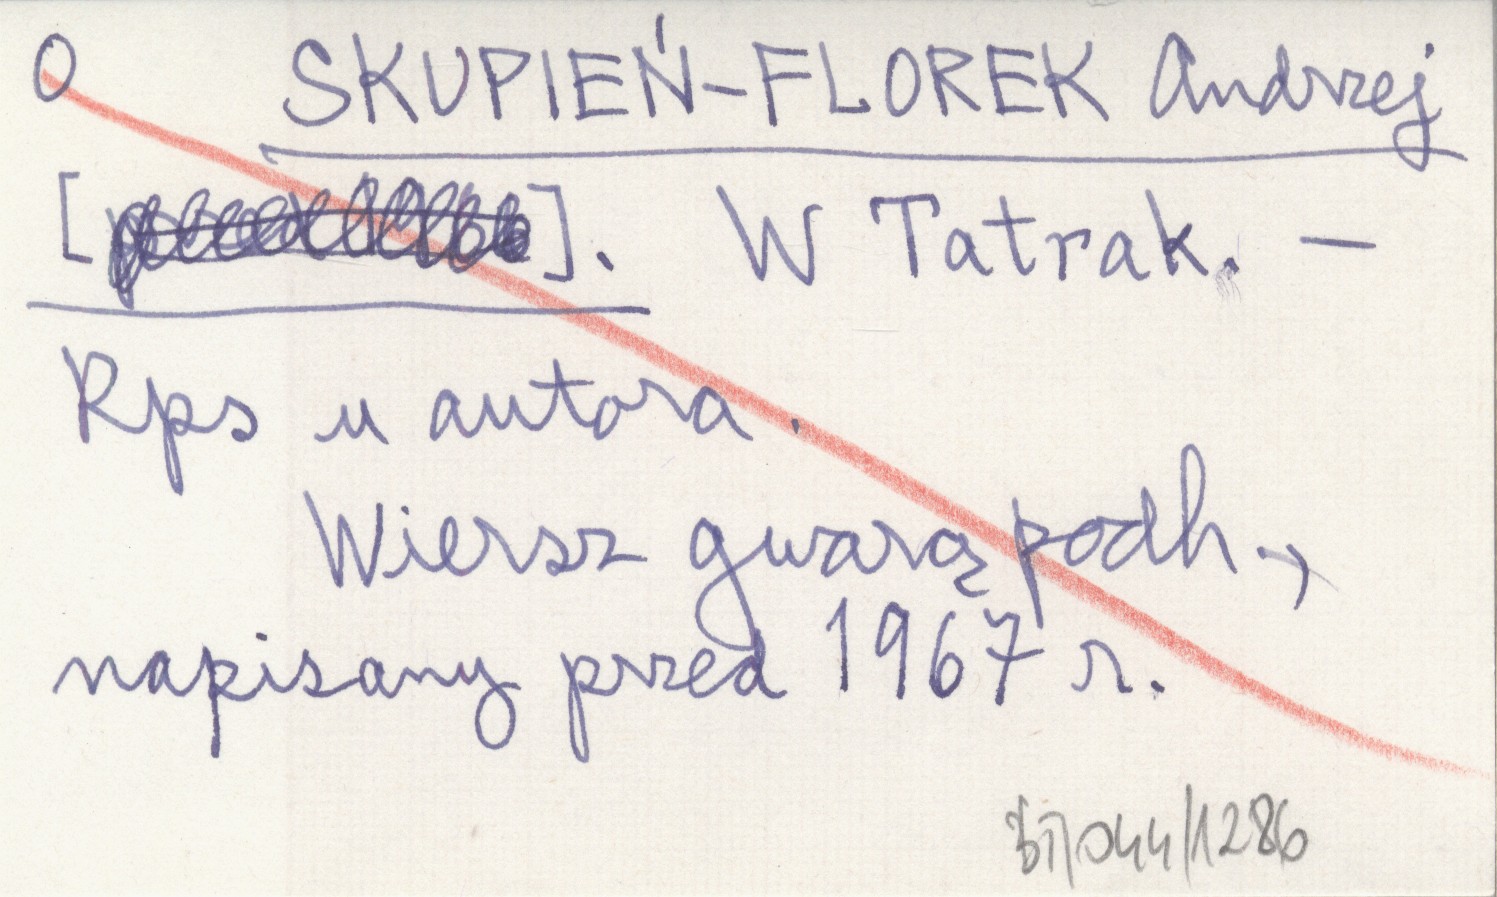 O SKUPIEŃ-FLOREK Andrzej
[]. W Tatrak. —
Rps u autora.
Wiersz gwarą podh.,
napisany przed 1967 r.
/044/1286